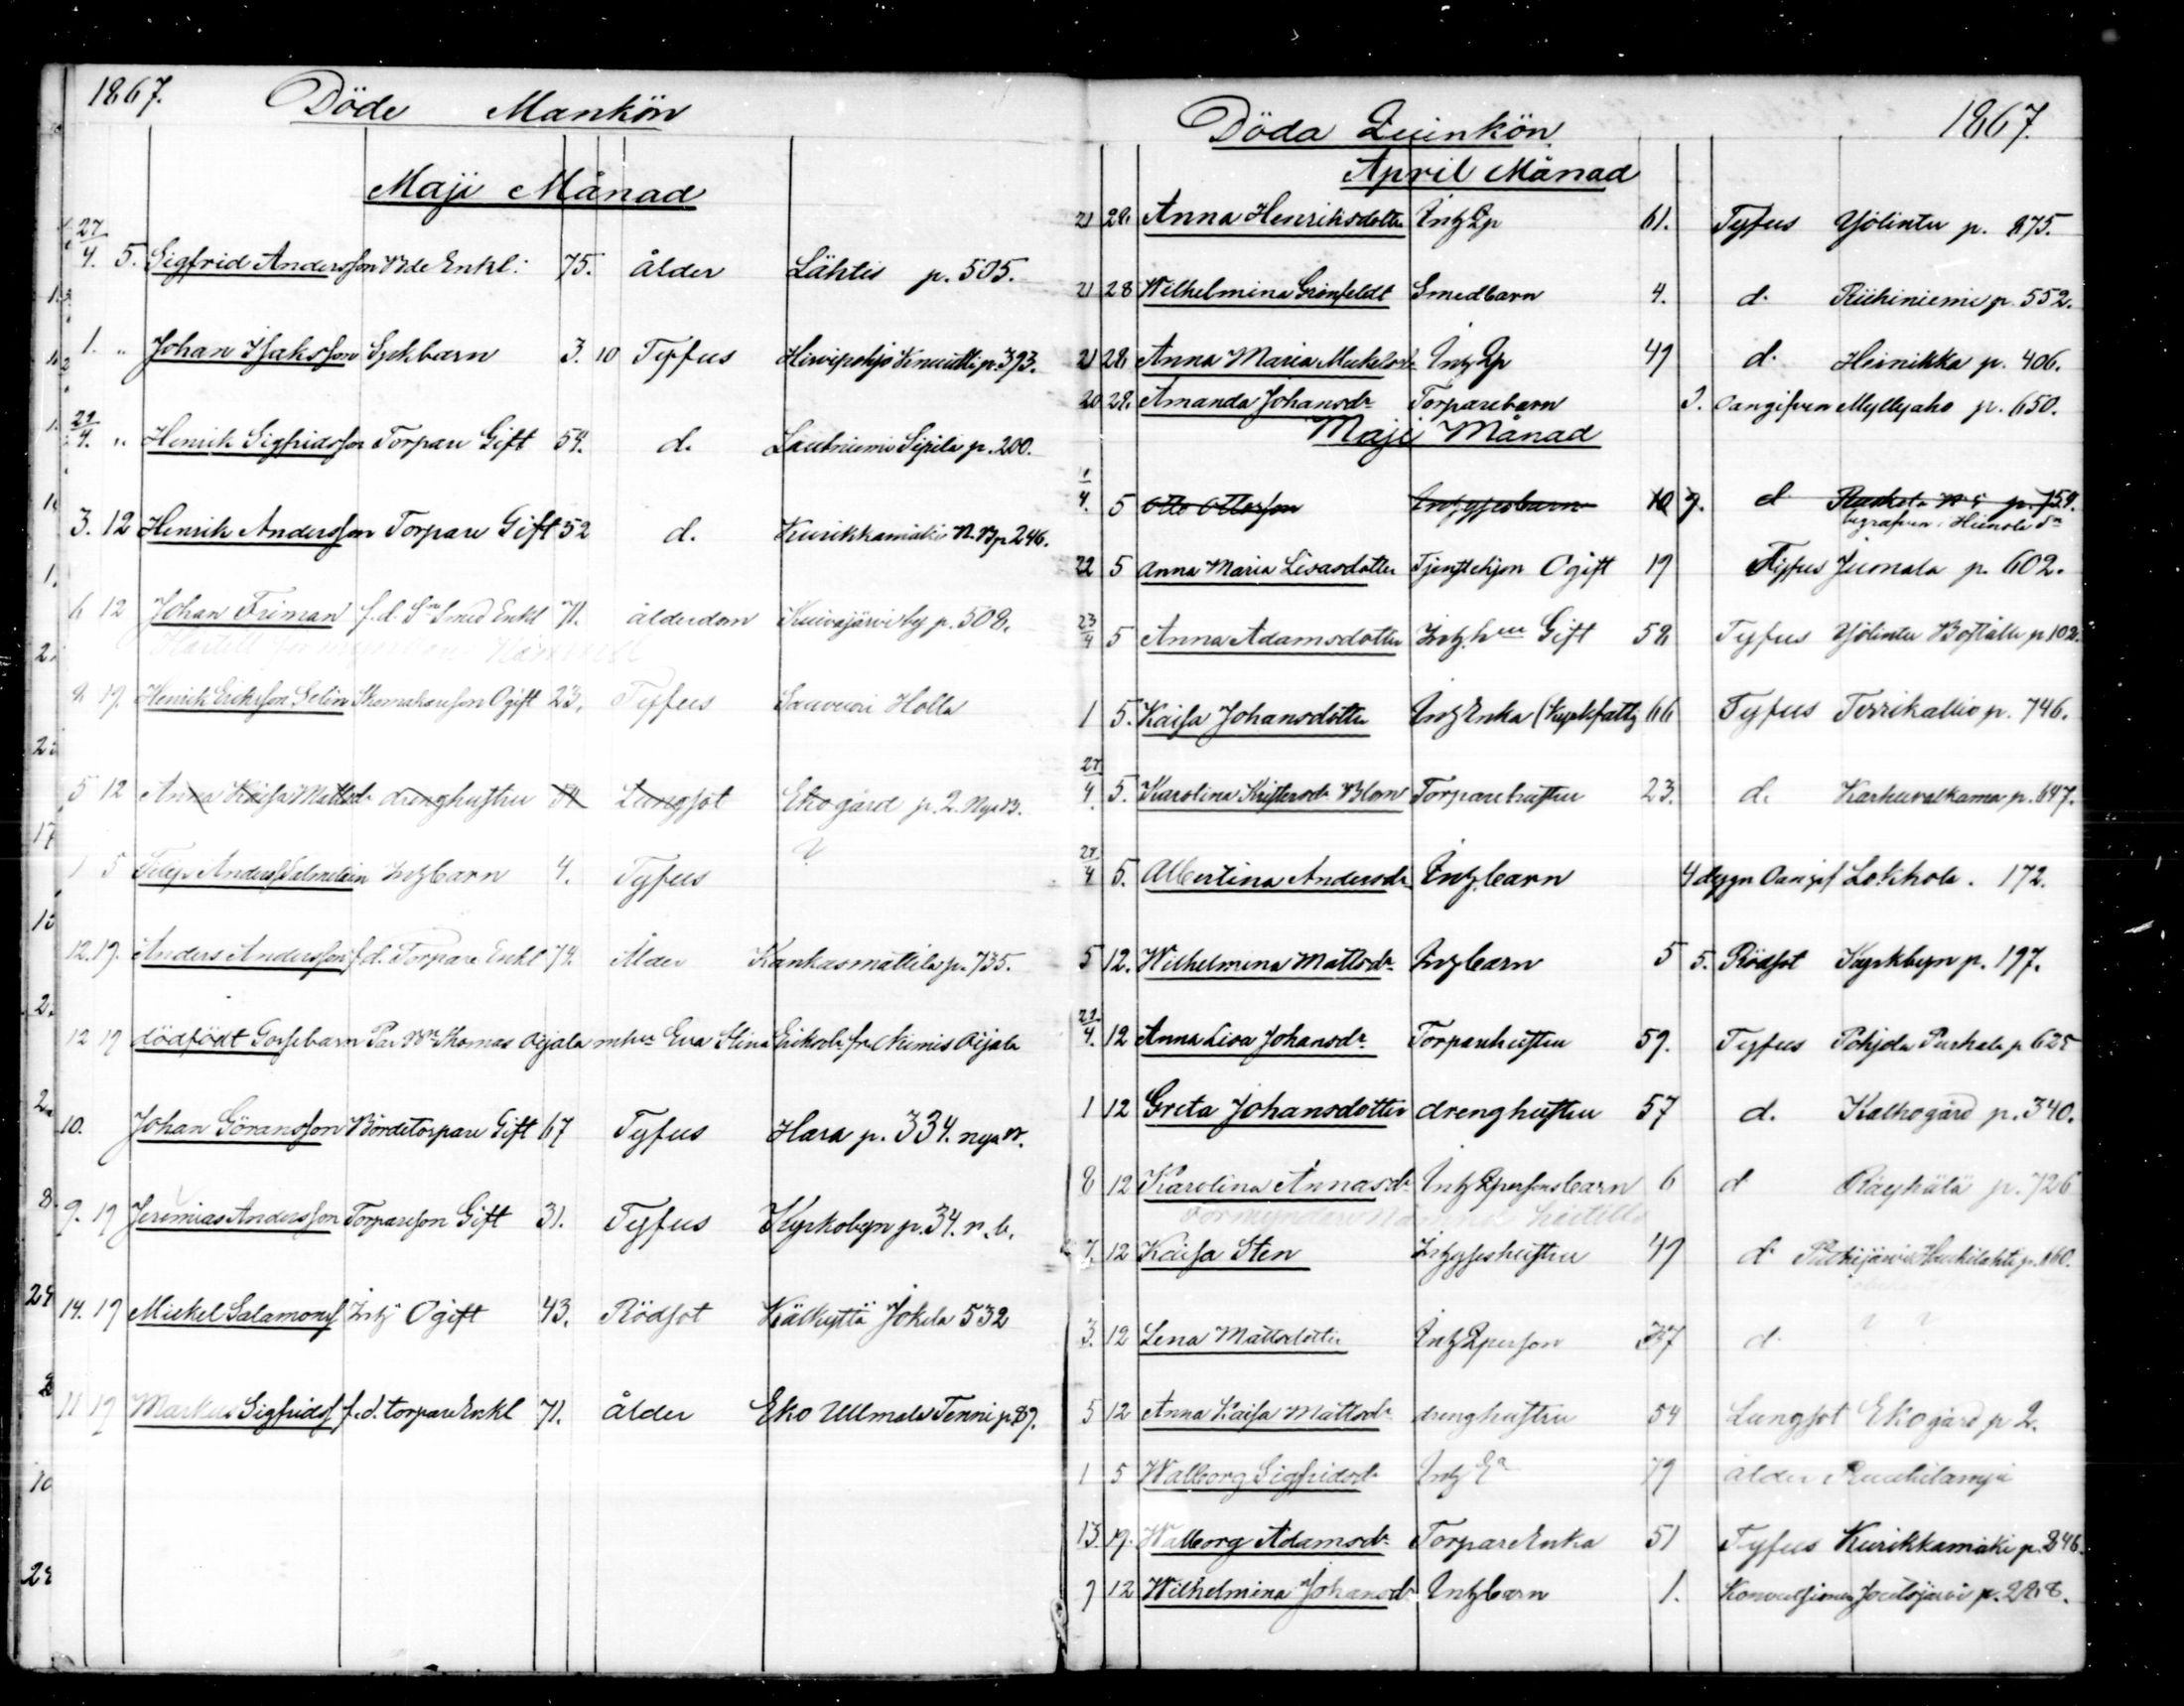 1867. Döde Mankön
Maji Månad
27/4. 5. Sigfrid Andersson Bde Enkl: 75. ålder Lähtis p. 505.
1. " Johan Isaksson Sytbarn 3. 10 Tyfus Hirvipohja Knuutila p. 393.
29/4. " Henrik Sigfridsson Torpare Gift 54. d. Lautniemi Sipilä p. 200.
3. 12 Henrik Andersson Torpare Gift 52 d. Kurikkamäki N. B p 246.
6 12 Johan Friman f.d. Sn Smed Enkl 71. ålderdom Kuivajärvi by p. 508.
Härtill
8 19. Henrik Eriksson Selin Skomakareson Ogift 23. Tyfus Sauvuori Holla
5 12 Anna Kaisa Mattsdr drenghustru 54 Lungsot Eko gård p. 2. Nya B.
1 5 Filip Anderss Salmelain Inhbarn 4. Tyfus ?
12. 19. Anders Andersson f.d. Torpare Enkl 74. Ålder Kankasmattila p. 735.
12 19 dödfödt Gossebarn Far Bn Thomas Ojala m hu Eva Stina Eriksdr fr. Niemis Ojala
10. Johan Göransson Bördetorpare Gift 67 Tyfus Hara p. 334. nya B.
9. 19 Jeremias Andersson Torpareson Gift 31. Tyfus Kyrkobyn p. 34. n. b.
14. 19 Mickel Salamonss Inh Ogift 43. Rödsot Kälkyttä Jokela 532
11 19 Markus Sigfridss f.d. torpare Enkl 71. ålder Eko Ullmala Tenni p 89.
Döda Quinkön 1867.
April Månad
21 28. Anna Henriksdotter Inh Qp 61. Tyfus Yölintu p. 875.
21 28 Wilhelmina Grönfeldt Smedbarn 4. d. Riihiniemi p. 552.
21 28. Anna Maria Mickelsdr Inh Qp 49 d. Heinikka p. 406.
20 28. Amanda Johansdr Torparebarn 3. Oangifven Myllyaho p. 650.
Maji Månad
1/4. 5 Otto Ottosson Inhysesbarn 10 9. d Raskola No 5 p. 754.
begrafven i Heinola Sn
22 5 Anna Maria Lisasdotter Tjenstehjon Ogift 19 Tyfus Jumala p. 602.
23/4 5 Anna Adamsdotter Inh. hu Gift 58 Tyfus Yölintu Boställe p 102.
1 5. Kaisa Johansdotter Inh Enka (Kyrkfattig 66 Tyfus Terrikallio p. 746.
27/4. 5. Karolina Kristersdr Blom Torparehustru 23. d. Karhuvalkama p. 647.
27/4 5. Albertina Andersdr Inh. barn 4 dygn Oangif Lokkola. 172.
5 12. Wilhelmina Mattsdr Inhbarn 5 5. Rödsot Kyrkbyn p. 197.
29/4. 12 Anna Lisa Johansdr Torparehustru 59. Tyfus Pohjola Purhala p 625
1 12 Greta Johansdotter drenghustru 57 d. Kalhogård p. 340.
8 12 Karolina Annasdr Inh Qpersons barn 6 d Räyhälä p. 726
Förmyndare härtills
7. 12 Kaisa Sten Inhyseshustru 49 d Pätkijärvi Haukilahti p. 160.
3. 12 Lena Mattsdotter Inh Qperson 37 d ? ?
5 12 Anna Kaisa Mattsdr drenghustru 54 Lungsot Eko gård p 2.
1 5 Walborg Sigfridsdr Inh Ea 79 ålder
13. 19. Walborg Adamsdr Torpare Enka 51 Tyfus Kurikkamäki p. 246.
9 12 Wilhelmina Johansdr Inhbarn 1. Konvulsioner Joutsjärvi p. 228.